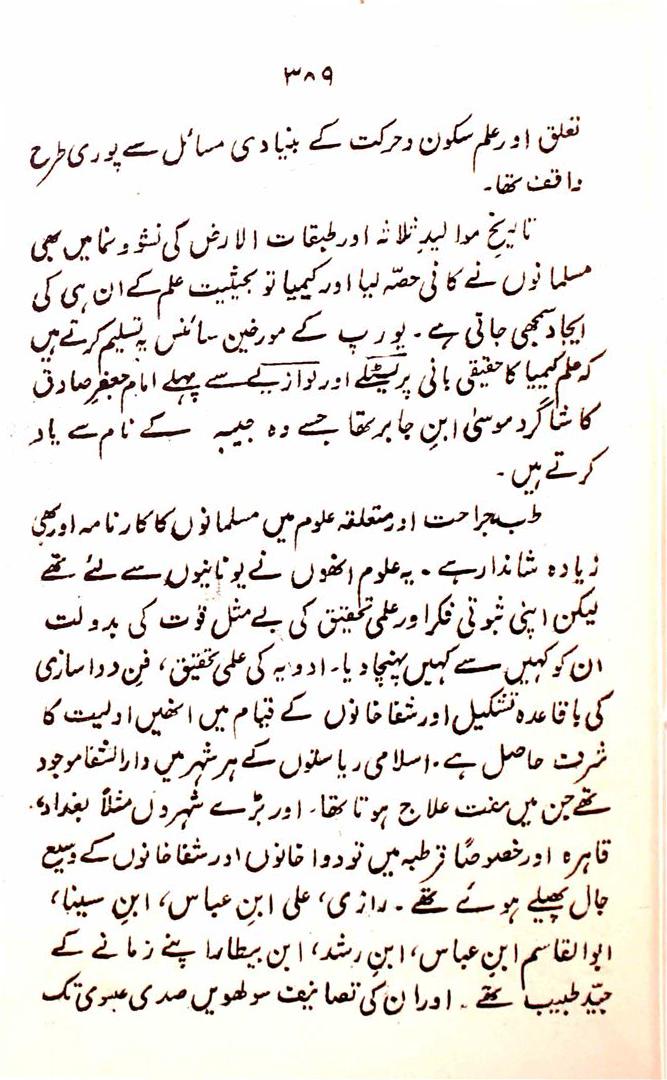 ۳۸۹
تعلق اور علم سکون وحرکت کے بنیادی مسائل سے پوری طرح
واقف تھا۔
تاریخِ موالیدِ ثلاثہ اور طبقات الارض کی نشوونما میں بھی
مسلمانوں نے کافی حصّہ لیا اور کیمیا تو بحیثیت علم کے ان ہی کی
ایجاد سمجھی جاتی ہے۔ یورپ کے مورخین سائنس یہ تسلیم کرتے ہیں
کہ علم کیمیا کا حقیقی بانی پریسٹلے اور لوازیے سے پہلے امام جعفر صادق
کا شاگرد موسیٰ ابنِ جابر تھا جسے وہ جیبہ کے نام سے یاد
کرتے ہیں۔
طب جراحت اور متعلقہ علوم میں مسلمانوں کا کارنامہ اور بھی
زیادہ شاندار ہے۔ یہ علوم انھوں نے یونانیوں سے لئے تھے
لیکن اپنی ثبوتی فکر اور علمی تحقیق کی بے مثل قوت کی بدولت
ان کو کہیں سے کہیں پہنچا دیا۔ ادویہ کی علمی تحقیق، فنِ دواسازی
کی باقاعدہ تشکیل اور شفاخانوں کے قیام میں انھیں اولیت کا
شرف حاصل ہے۔ اسلامی ریاستوں کے ہر شہر میں دارالشفا موجود
تھے جن میں مفت علاج ہوتا تھا۔ اور بڑے شہروں مثلاً بغداد،
قاہرہ اور خصوصاً قرطبہ میں تو دواخانوں اور شفاخانوں کے وسیع
جال پھیلے ہوئے تھے۔ رازی، علی ابنِ عباس، ابنِ سینا،
ابوالقاسم ابنِ عباس، ابنِ رشد، ابن بیطار اپنے زمانے کے
جیّد طبیب تھے۔ اور ان کی تصانیف سولھویں صدی عیسوی تک